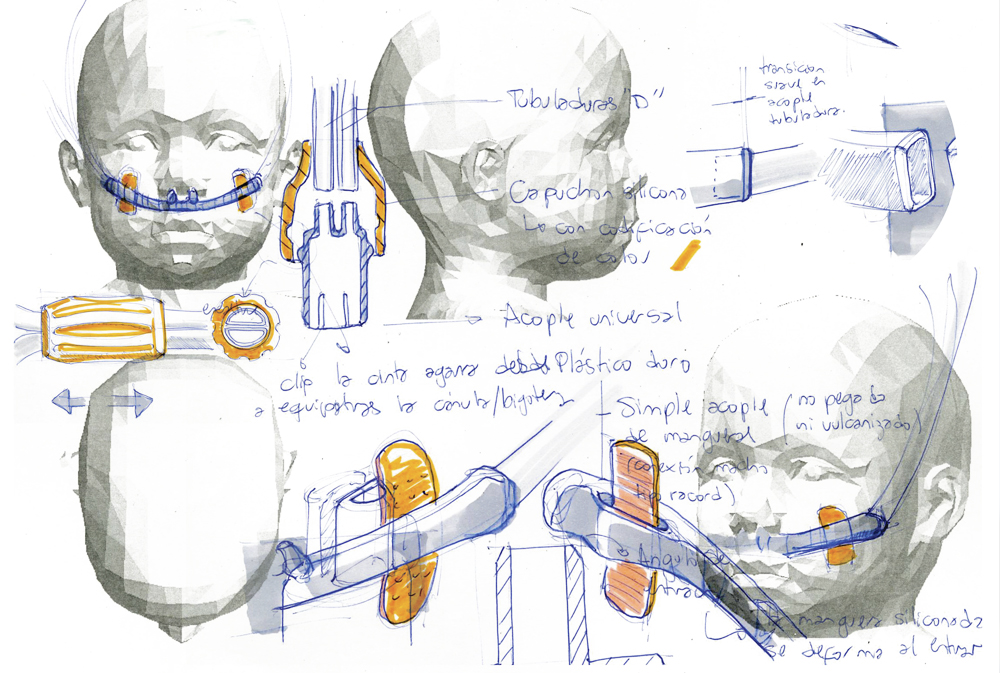 transición
suave en
acople
tubuladura.
Tubuladuras "D"
Capuchón silicona
Lo con codificación
de color
Acople universal
Plástico duro
clip la cinta agarra
a la cánula/bigotera
Simple acople (no pegado
ni vulcanizado)
de
macho
tipo racord)
Angulo de
entrada
manguera siliconada
se deforma al entrar